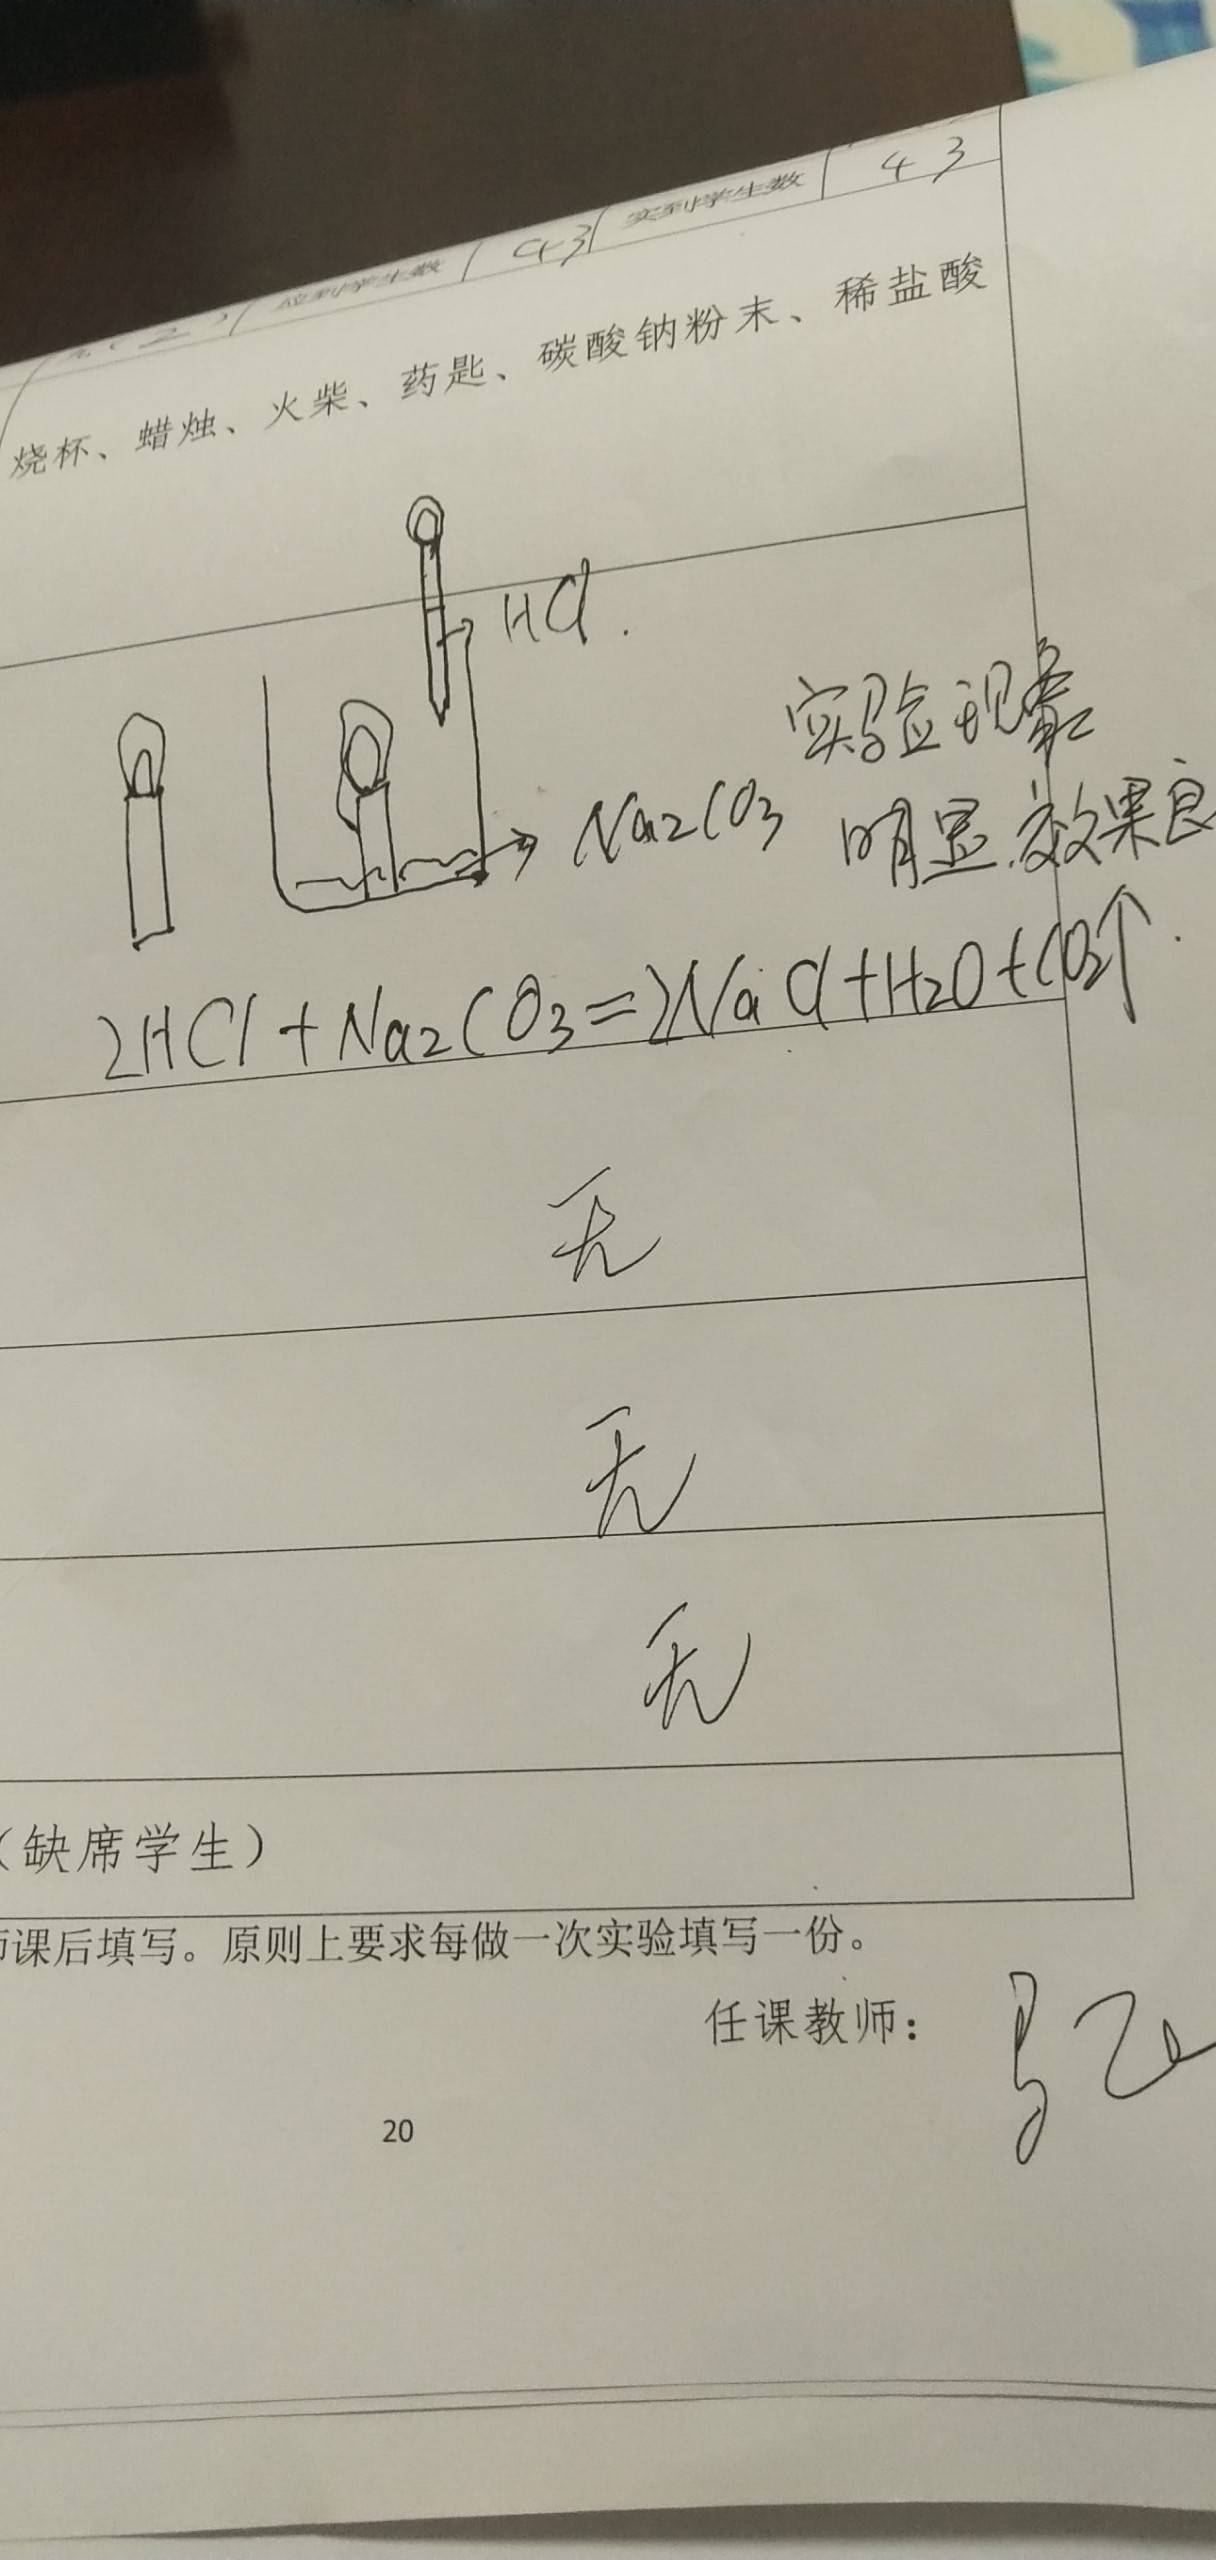 应到学生数 43 实到学生数 43
烧杯、蜡烛、火柴、药匙、碳酸钠粉末、稀盐酸
HCl.
实验现象
Na2CO3 明显.效果良
2HCl+Na2CO3=2NaCl+H2O+CO2↑.
无
无
无
(缺席学生)
课后填写。原则上要求每做一次实验填写一份。
任课教师:
20